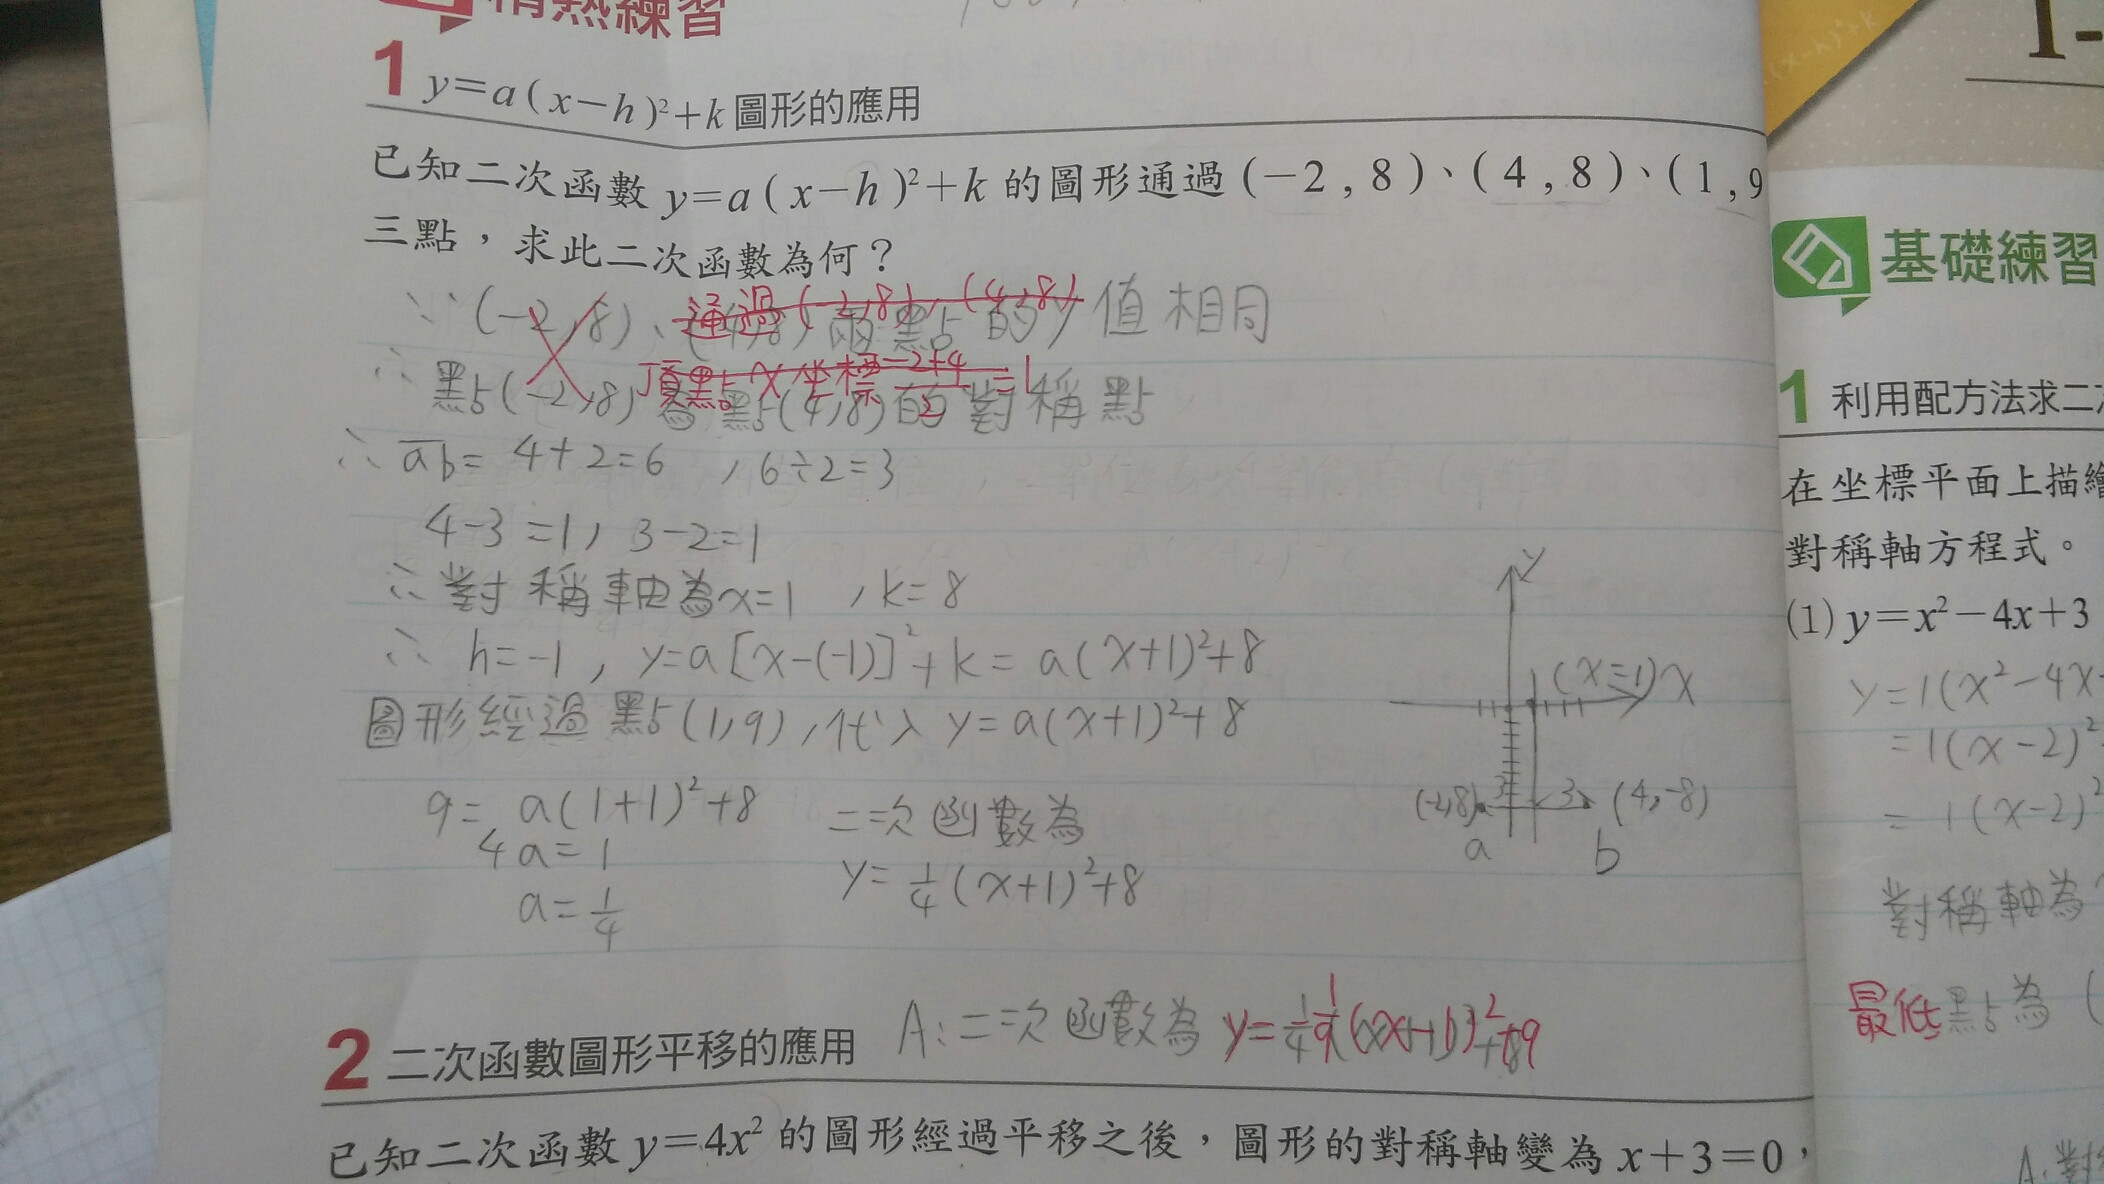 精熟練習
1 y=a(x-h)²+k 圖形的應用
已知二次函數 y=a(x-h)²+k 的圖形通過 (-2,8)、(4,8)、(1,9
三點，求此二次函數為何？
∵(-2,8)、(4,8)兩點的y值相同
通過(-2,8),(4,8)
∴點(-2,8)為點(4,8)的對稱點
頂點x坐標 \frac{-2+4}{2}=1
∴ \overline{ab}= 4+2=6 , 6÷2=3
4-3=1, 3-2=1
∴對稱軸為x=1 , k=8
∴ h=-1, y=a[x-(-1)]²+k= a(x+1)²+8
圖形經過點(1,9),代入 y=a(x+1)²+8
9= a(1+1)²+8
4a=1
a=\frac{1}{4}
二次函數為
y=\frac{1}{4}(x+1)²+8
y
(x=1) x
(-2,8) 3 3 (4,-8)
a b
A:二次函數為 y=
2 二次函數圖形平移的應用
已知二次函數 y=4x² 的圖形經過平移之後，圖形的對稱軸變為 x+3=0，
(x-h)²+k
1-
基礎練習
1 利用配方法求二
在坐標平面上描繪
對稱軸方程式。
(1) y=x²-4x+3
y=1(x²-4x
=1(x-2)²
= 1(x-2)²
對稱軸為
最低點為(
A:對